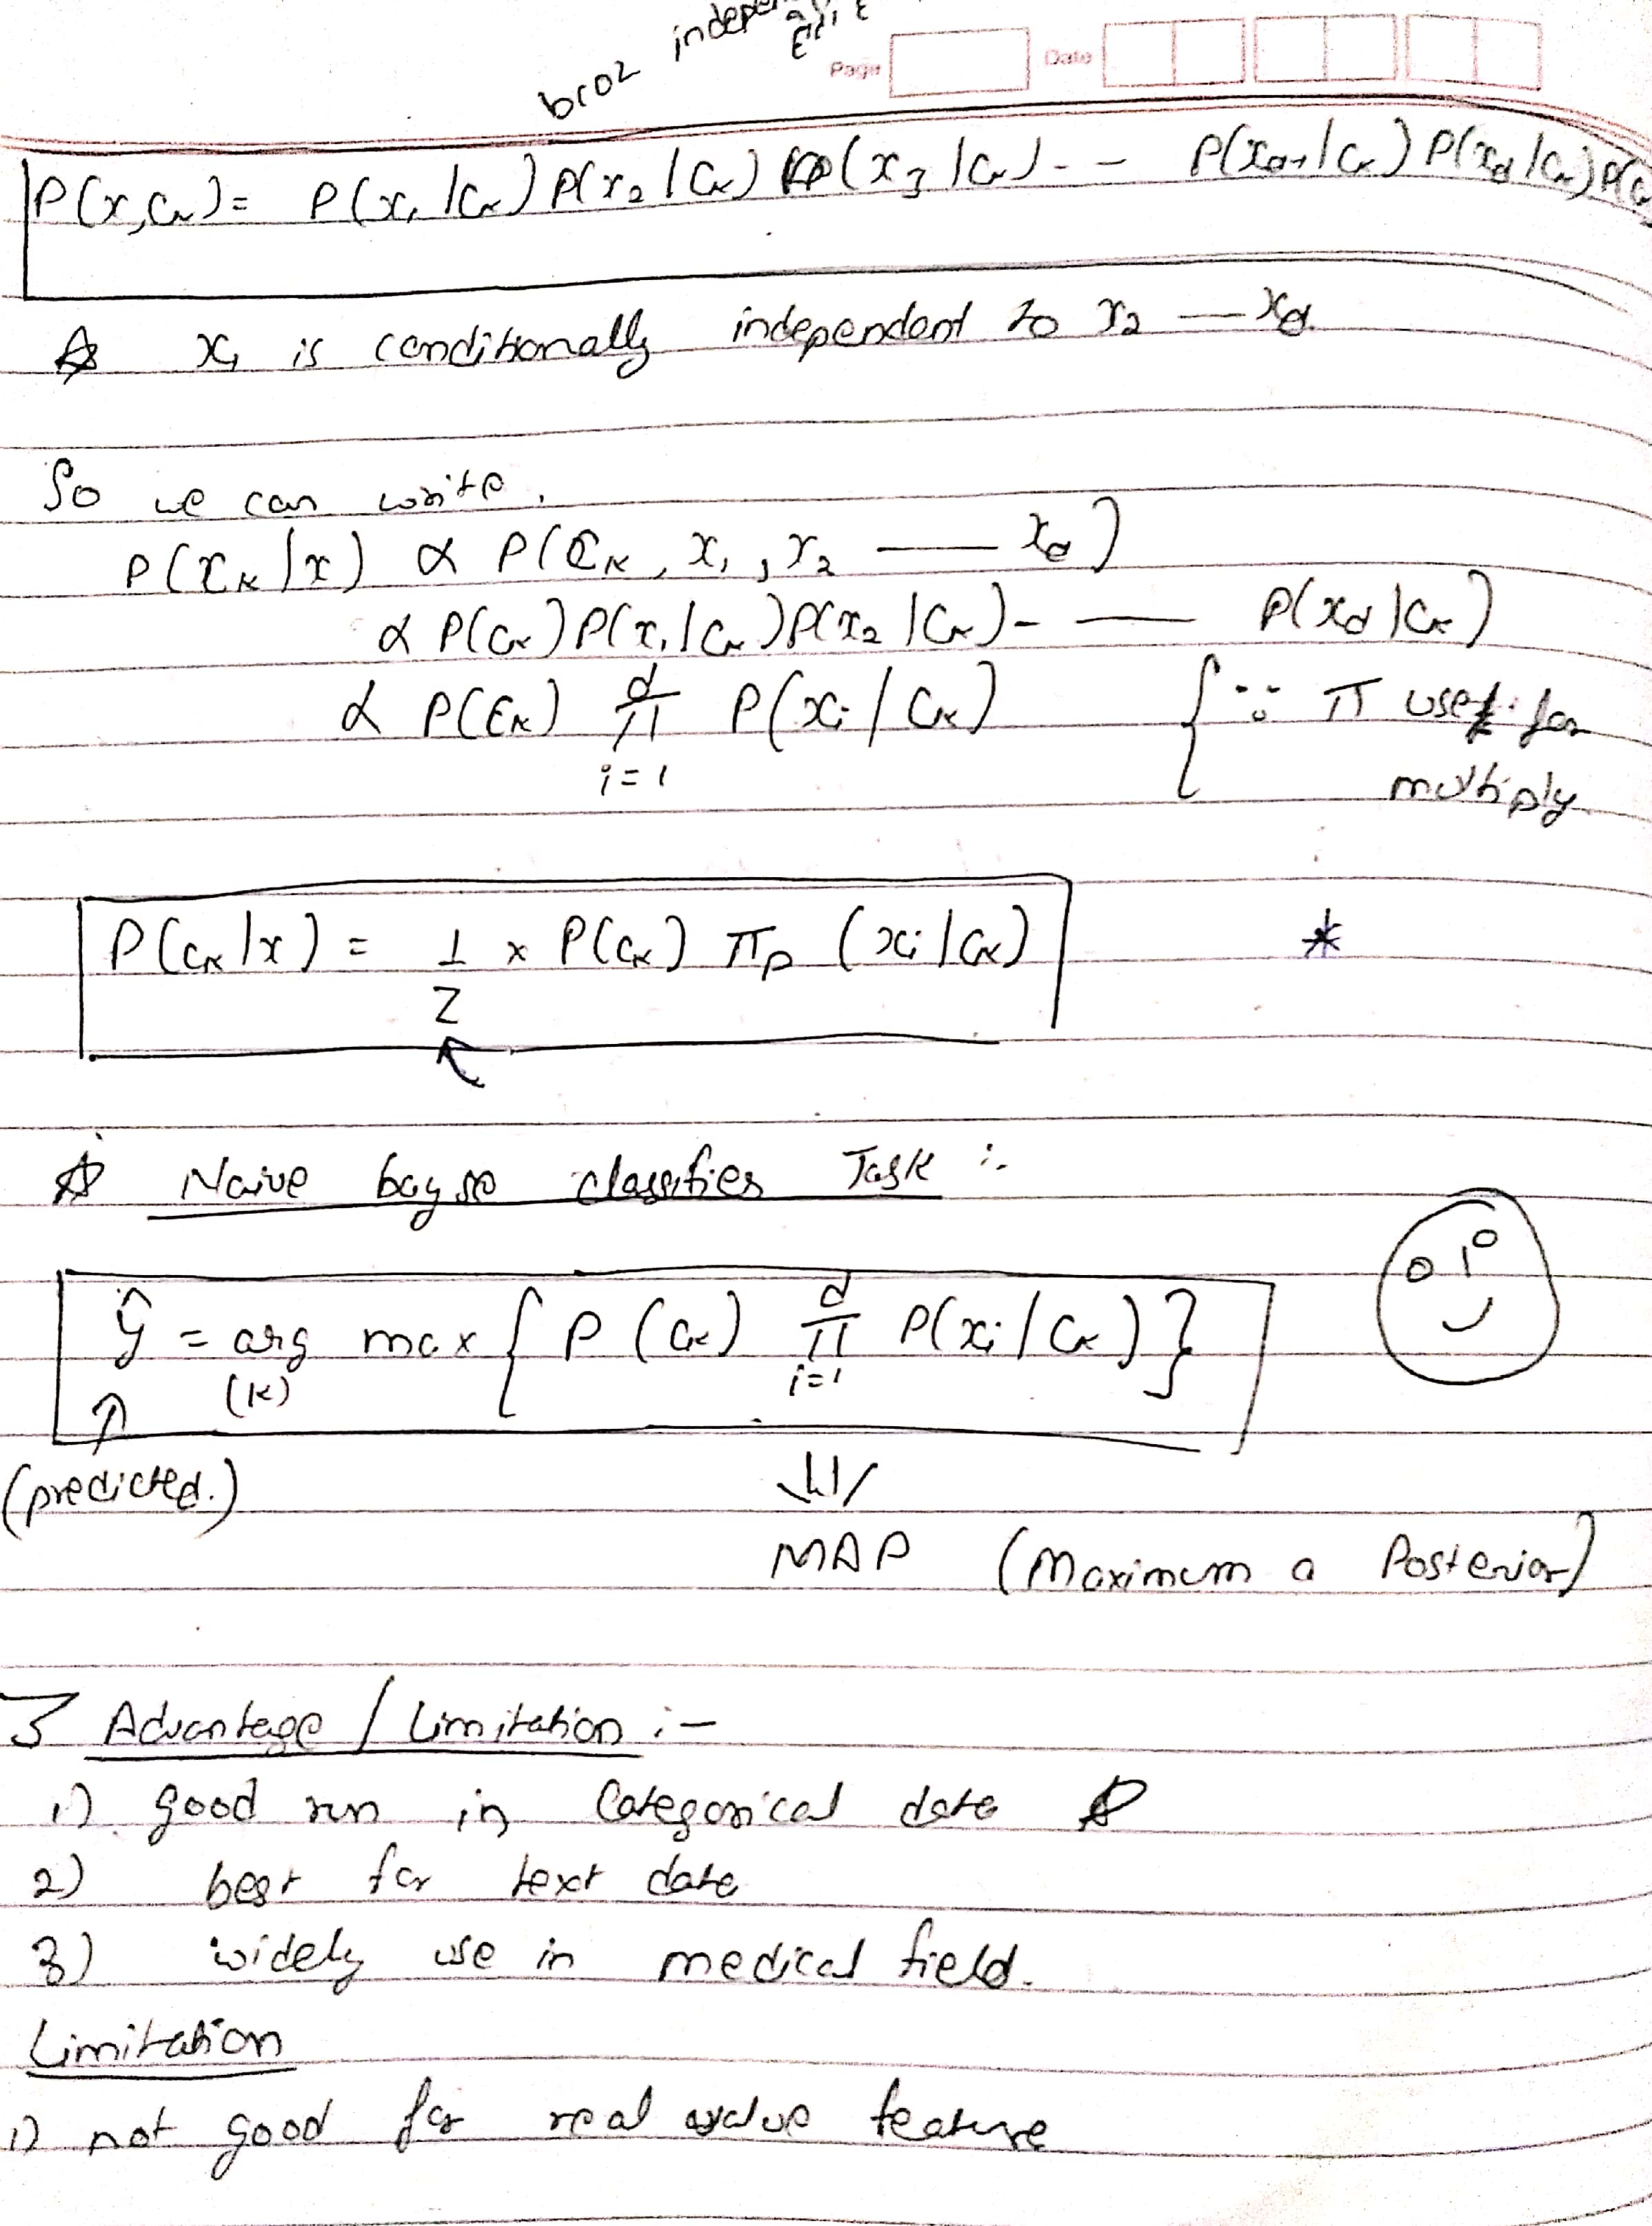 independ
Page Date
P(x,Cₖ) = P(x₁|Cₖ) P(x₂|Cₖ) P(x₃|Cₖ) - - P(x_d-1|Cₖ) P(x_d|Cₖ) P(C
x₁ is conditionally independent to x₂ — x_d
So we can write.
P(xₖ|x) ∝ P(Cₖ, x₁, x₂ — x_d)
∝ P(Cₖ) P(x₁|Cₖ) P(x₂|Cₖ) - — P(x_d|Cₖ)
∝ P(Cₖ) d π i=1 P(xᵢ|Cₖ) { ∵ π use for
multiply
P(Cₖ|x) = 1/Z × P(Cₖ) πp (xᵢ|Cₖ) *
Naive bayse classifies Task :-
ŷ = arg max (k) { P(Cₖ) d π i=1 P(xᵢ|Cₖ) }
(predicted.)
MAP (Maximum a Posterior)
3 Advantage / Limitation :-
1) good run in Categorical data
2) best for text data
3) widely use in medical field.
Limitation
1) not good for real value feature